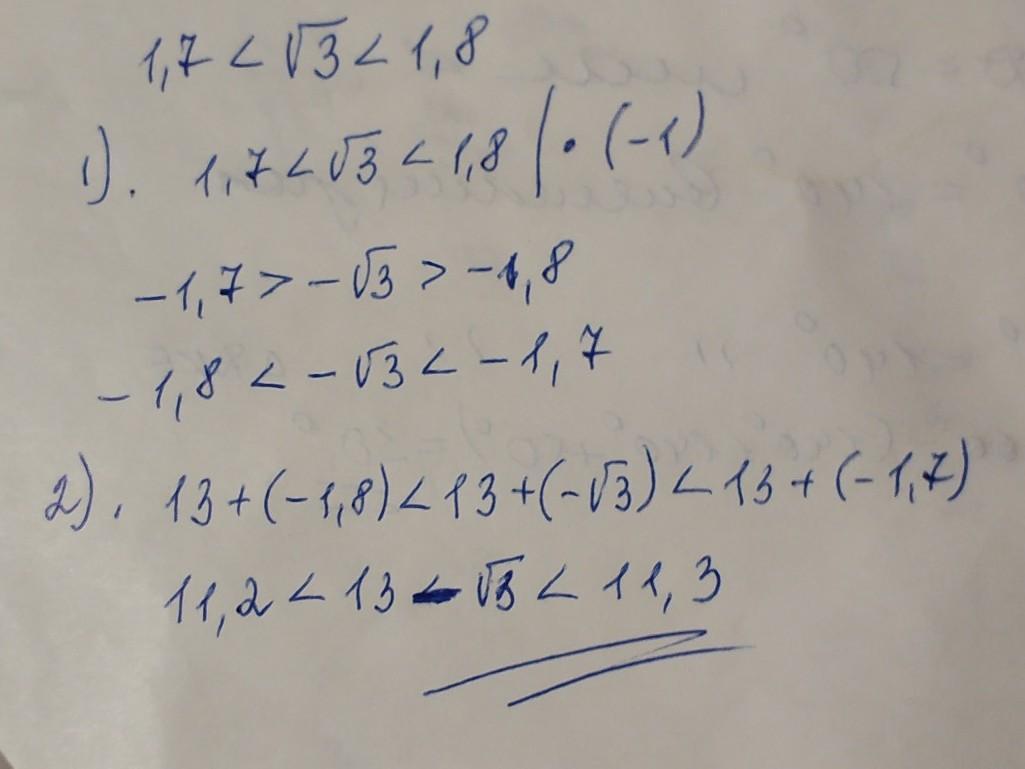 1,7 < √3 < 1,8
1). 1,7 < √3 < 1,8 | · (-1)
-1,7 > -√3 > -1,8
-1,8 < -√3 < -1,7
2). 13 + (-1,8) < 13 + (-√3) < 13 + (-1,7)
11,2 < 13 - √3 < 11,3